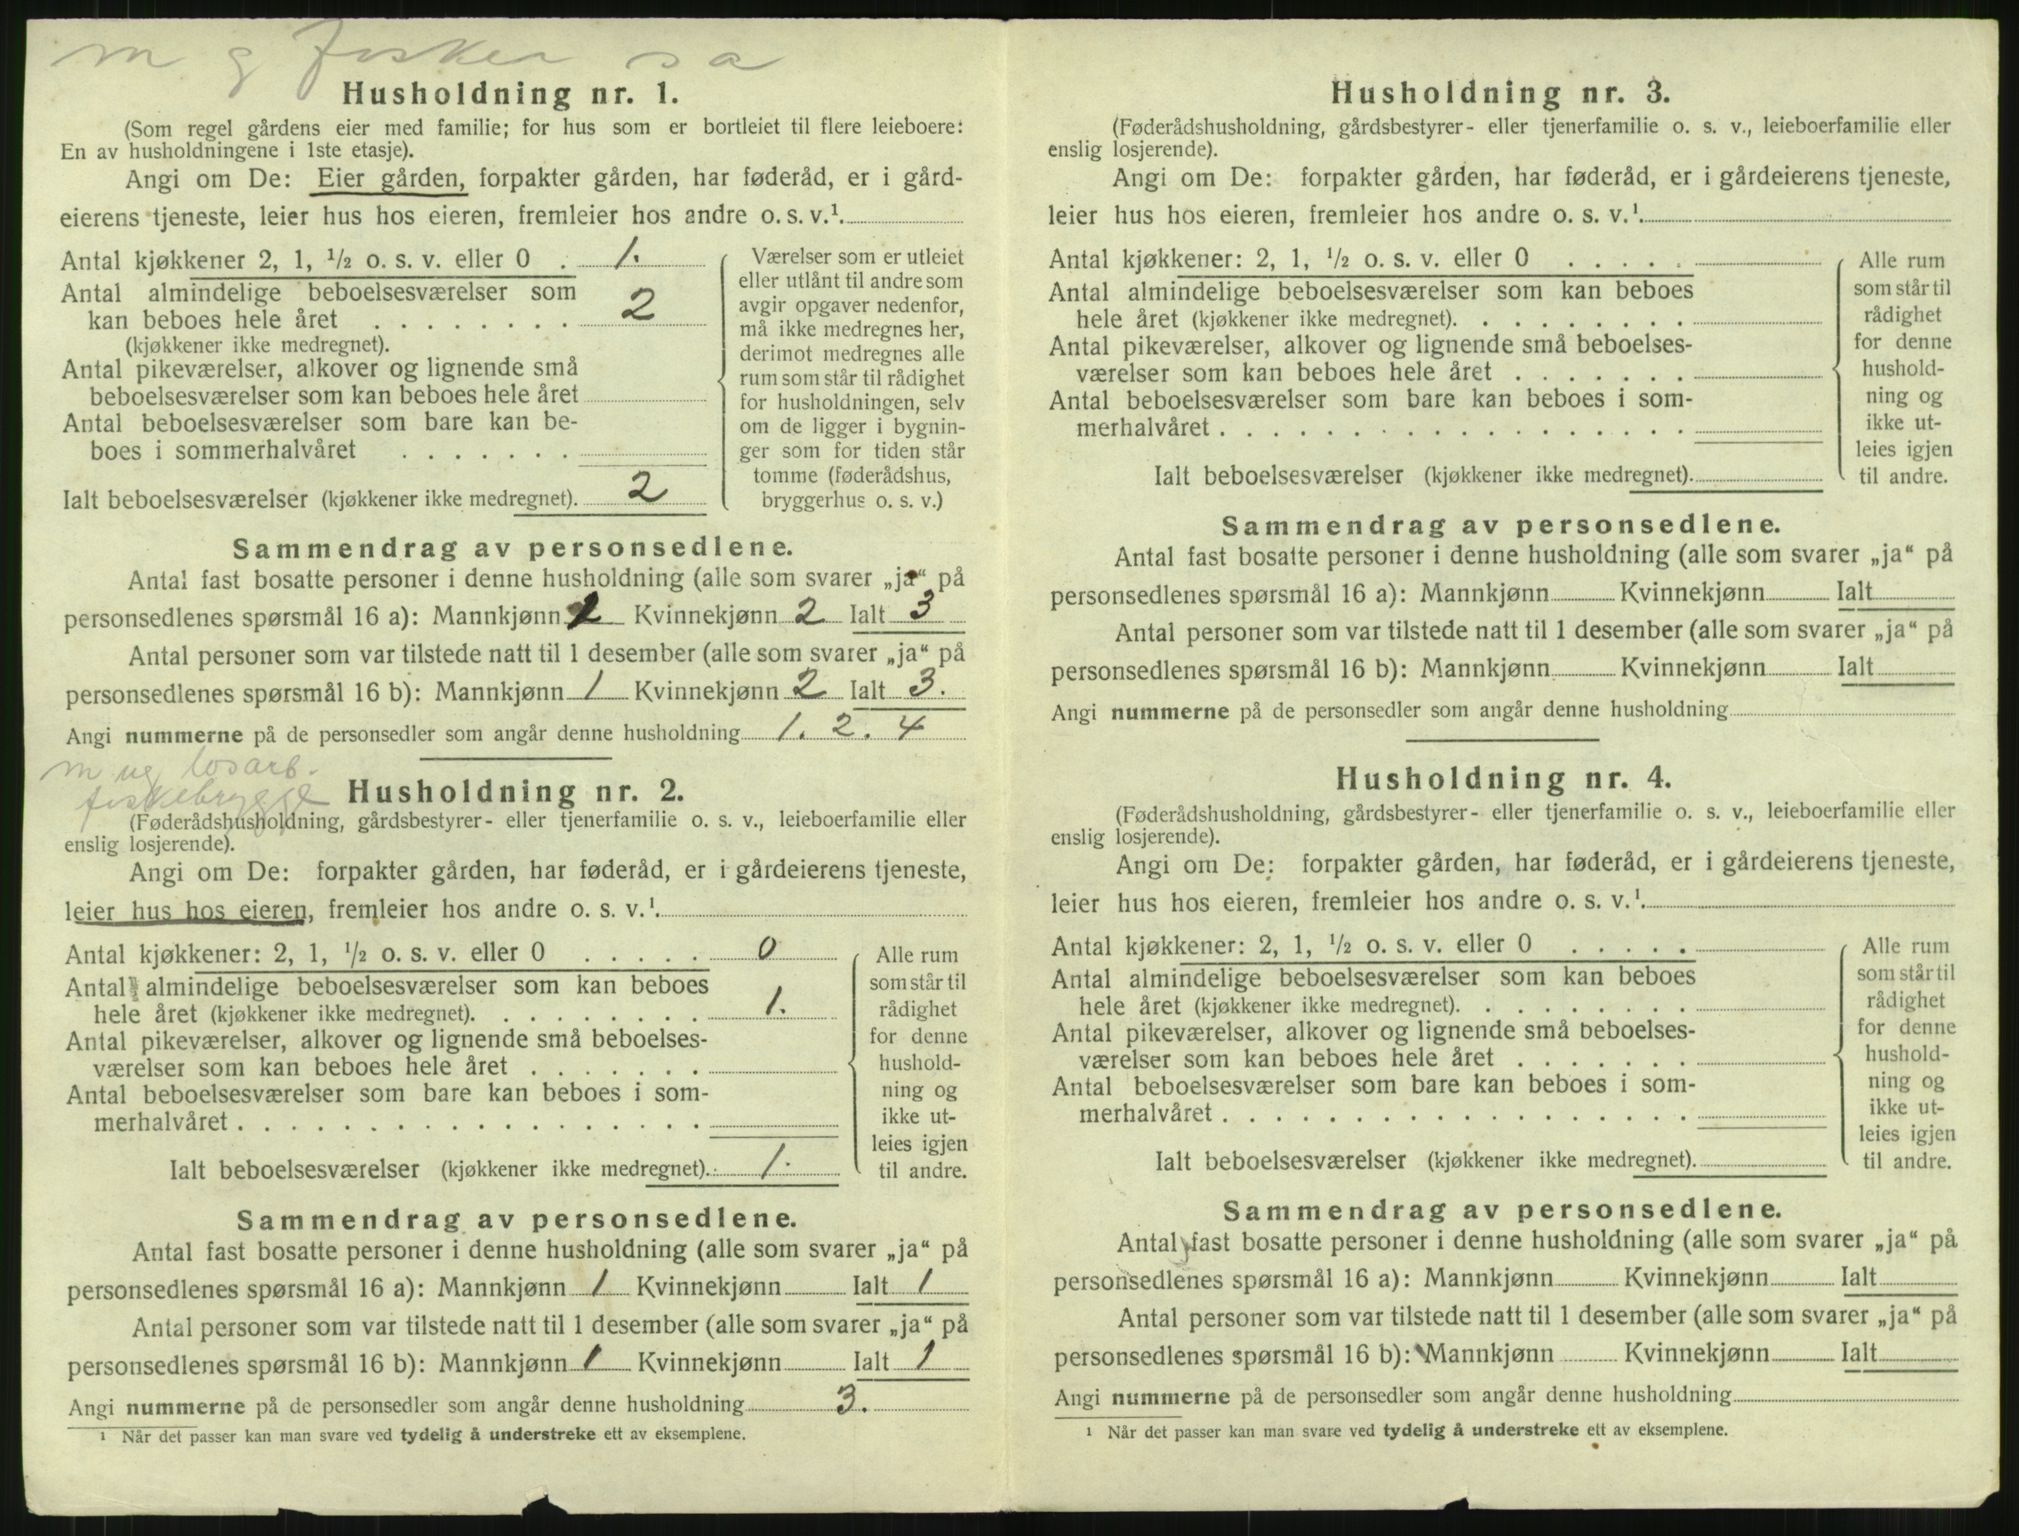 m g fisker s a
Husholdning nr. 1.
(Som regel gårdens eier med familie; for hus som er bortleiet til flere leieboere:
En av husholdningene i 1ste etasje).
Angi om De: Eier gården, forpakter gården, har føderåd, er i gård-
eierens tjeneste, leier hus hos eieren, fremleier hos andre o. s. v.¹
Antal kjøkkener 2, 1, ½ o. s. v. eller 0 . 1.
Antal almindelige beboelsesværelser som
kan beboes hele året . . . . . . . . 2
(kjøkkener ikke medregnet).
Antal pikeværelser, alkover og lignende små
beboelsesværelser som kan beboes hele året
Antal beboelsesværelser som bare kan be-
boes i sommerhalvåret . . . . . . .
Ialt beboelsesværelser (kjøkkener ikke medregnet). 2
Værelser som er utleiet
eller utlånt til andre som
avgir opgaver nedenfor,
må ikke medregnes her,
derimot medregnes alle
rum som står til rådighet
for husholdningen, selv
om de ligger i bygnin-
ger som for tiden står
tomme (føderådshus,
bryggerhus o. s. v.)
Sammendrag av personsedlene.
Antal fast bosatte personer i denne husholdning (alle som svarer „ja“ på
personsedlenes spørsmål 16 a): Mannkjønn 1 Kvinnekjønn 2 Ialt 3
Antal personer som var tilstede natt til 1 desember (alle som svarer „ja“ på
personsedlenes spørsmål 16 b): Mannkjønn 1 Kvinnekjønn 2 Ialt 3.
Angi nummerne på de personsedler som angår denne husholdning 1. 2. 4
m ug losarb.
fiskebrygge
Husholdning nr. 2.
(Føderådshusholdning, gårdsbestyrer- eller tjenerfamilie o. s. v., leieboerfamilie eller
enslig losjerende).
Angi om De: forpakter gården, har føderåd, er i gårdeierens tjeneste,
leier hus hos eieren, fremleier hos andre o. s. v.¹
Antal kjøkkener: 2, 1, ½ o. s. v. eller 0 . . . . . 0
Antal almindelige beboelsesværelser som kan beboes
hele året (kjøkkener ikke medregnet). . . . . . . . . 1.
Antal pikeværelser, alkover og lignende små beboelses-
værelser som kan beboes hele året . . . . . . .
Antal beboelsesværelser som bare kan beboes i som-
merhalvåret . . . . . . . . . . . . . . . . . .
Ialt beboelsesværelser (kjøkkener ikke medregnet). 1.
Alle rum
som står til
rådighet
for denne
hushold-
ning og
ikke ut-
leies igjen
til andre.
Sammendrag av personsedlene.
Antal fast bosatte personer i denne husholdning (alle som svarer „ja“ på
personsedlenes spørsmål 16 a): Mannkjønn 1 Kvinnekjønn Ialt 1
Antal personer som var tilstede natt til 1 desember (alle som svarer „ja“ på
personsedlenes spørsmål 16 b): Mannkjønn 1 Kvinnekjønn Ialt 1
Angi nummerne på de personsedler som angår denne husholdning 3.
¹ Når det passer kan man svare ved tydelig å understreke ett av eksemplene.
Husholdning nr. 3.
(Føderådshusholdning, gårdsbestyrer- eller tjenerfamilie o. s. v., leieboerfamilie eller
enslig losjerende).
Angi om De: forpakter gården, har føderåd, er i gårdeierens tjeneste,
leier hus hos eieren, fremleier hos andre o. s. v.¹
Antal kjøkkener: 2, 1, ½ o. s. v. eller 0 . . . . .
Antal almindelige beboelsesværelser som kan beboes
hele året (kjøkkener ikke medregnet). . . . . . . . .
Antal pikeværelser, alkover og lignende små beboelses-
værelser som kan beboes hele året . . . . . . .
Antal beboelsesværelser som bare kan beboes i som-
merhalvåret . . . . . . . . . . . . . . . . . .
Ialt beboelsesværelser (kjøkkener ikke medregnet).
Alle rum
som står til
rådighet
for denne
hushold-
ning og
ikke ut-
leies igjen
til andre.
Sammendrag av personsedlene.
Antal fast bosatte personer i denne husholdning (alle som svarer „ja“ på
personsedlenes spørsmål 16 a): Mannkjønn Kvinnekjønn Ialt
Antal personer som var tilstede natt til 1 desember (alle som svarer „ja“ på
personsedlenes spørsmål 16 b): Mannkjønn Kvinnekjønn Ialt
Angi nummerne på de personsedler som angår denne husholdning
Husholdning nr. 4.
(Føderådshusholdning, gårdsbestyrer- eller tjenerfamilie o. s. v., leieboerfamilie eller
enslig losjerende).
Angi om De: forpakter gården, har føderåd, er i gårdeierens tjeneste,
leier hus hos eieren, fremleier hos andre o. s. v.¹
Antal kjøkkener: 2, 1, ½ o. s. v. eller 0 . . . . .
Antal almindelige beboelsesværelser som kan beboes
hele året (kjøkkener ikke medregnet). . . . . . . . .
Antal pikeværelser, alkover og lignende små beboelses-
værelser som kan beboes hele året . . . . . . .
Antal beboelsesværelser som bare kan beboes i som-
merhalvåret . . . . . . . . . . . . . . . . . .
Ialt beboelsesværelser (kjøkkener ikke medregnet).
Alle rum
som står til
rådighet
for denne
hushold-
ning og
ikke ut-
leies igjen
til andre.
Sammendrag av personsedlene.
Antal fast bosatte personer i denne husholdning (alle som svarer „ja“ på
personsedlenes spørsmål 16 a): Mannkjønn Kvinnekjønn Ialt
Antal personer som var tilstede natt til 1 desember (alle som svarer „ja“ på
personsedlenes spørsmål 16 b): Mannkjønn Kvinnekjønn Ialt
Angi nummerne på de personsedler som angår denne husholdning
¹ Når det passer kan man svare ved tydelig å understreke ett av eksemplene.